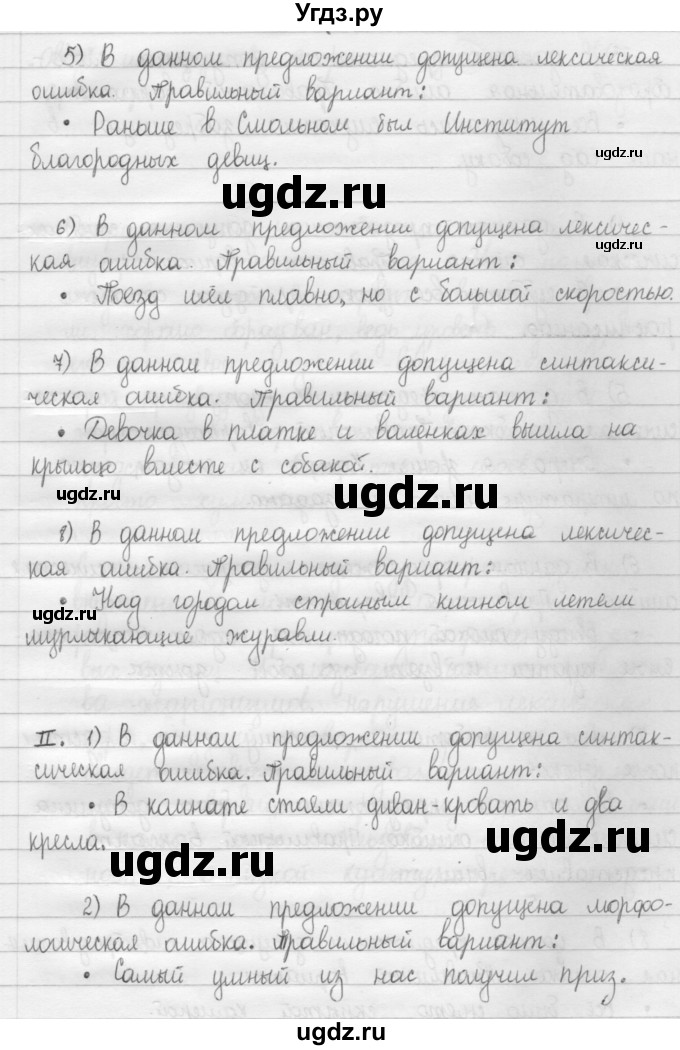 Угдз.ру
5) В данном предложении допущена лексическая
ошибка. Правильный вариант:
• Раньше в Смольном был Институт
благородных девиц.
ugdz.ru
ugdz.ru
ugdz.ru
6) В данном предложении допущена лексичес-
кая ошибка. Правильный вариант:
• Поезд шёл плавно, но с большой скоростью.
7) В данном предложении допущена синтакси-
ческая ошибка. Правильный вариант:
• Девочка в платке и валенках вышла на
крыльцо вместе с собакой.
ugdz.ru
ugdz.ru
8) В данном предложении допущена лексичес-
кая ошибка. Правильный вариант:
• Над городом стройным клином летели
ugdz.ru
мурлыкающие журавли.
II. 1) В данном предложении допущена синтак-
сическая ошибка. Правильный вариант:
• В комнате стояли диван-кровать и два
кресла.
ugdz.ru
ugdz.ru
2) В данном предложении допущена морфо-
логическая ошибка. Правильный вариант:
• Самый умный из нас получил приз.
ugdz.ru